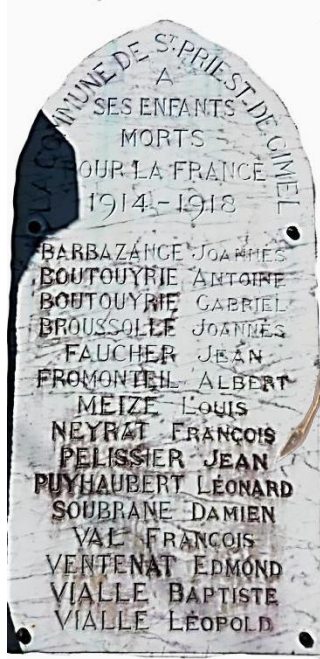 LA COMMUNE DE ST PRIEST-DE-GIMEL
A
SES ENFANTS
MORTS
POUR LA FRANCE
1914-1918
BARBAZANGE JOANNÈS
BOUTOUYRIE ANTOINE
BOUTOUYRIE GABRIEL
BROUSSOLLE JOANNÈS
FAUCHER JEAN
FROMONTEIL ALBERT
MEIZE LOUIS
NEYRAT FRANÇOIS
PELISSIER JEAN
PUYHAUBERT LÉONARD
SOUBRANE DAMIEN
VAL FRANÇOIS
VENTENAT EDMOND
VIALLE BAPTISTE
VIALLE LÉOPOLD